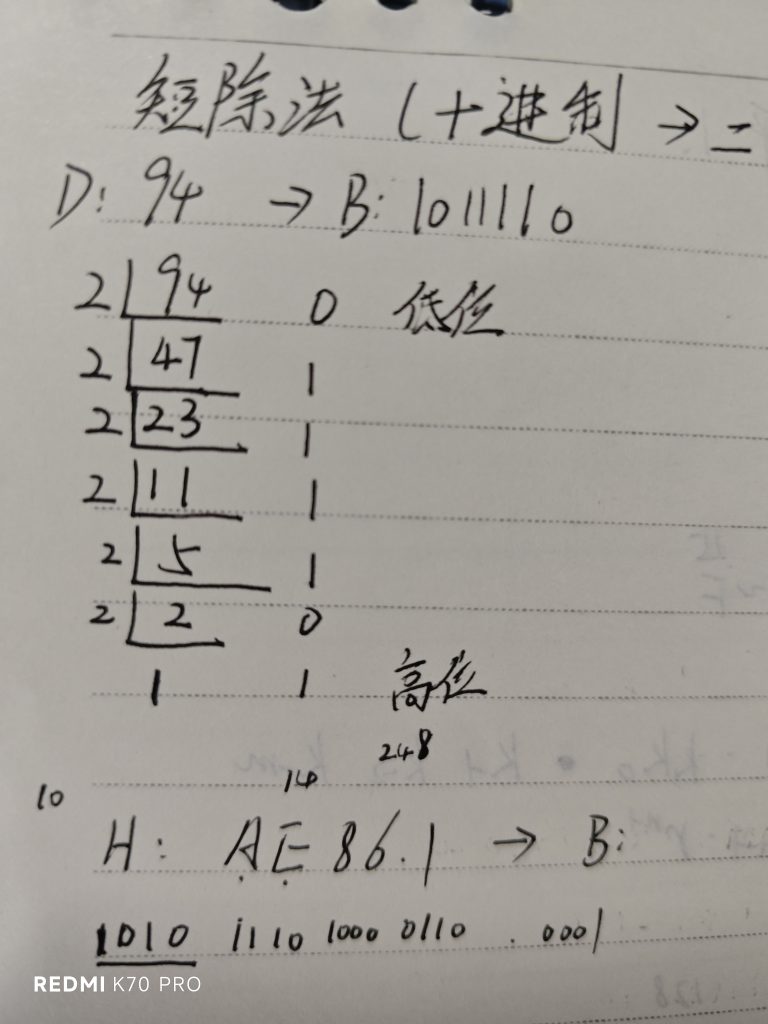 短除法 (十进制 → 二
D: 94 → B: 1011110
2 94 0 低位
2 47 1
2 23 1
2 11 1
2 5 1
2 2 0
1 1 高位
248
10 14
H: AE86.1 → B:
1010 1110 1000 0110 . 0001
REDMI K70 PRO